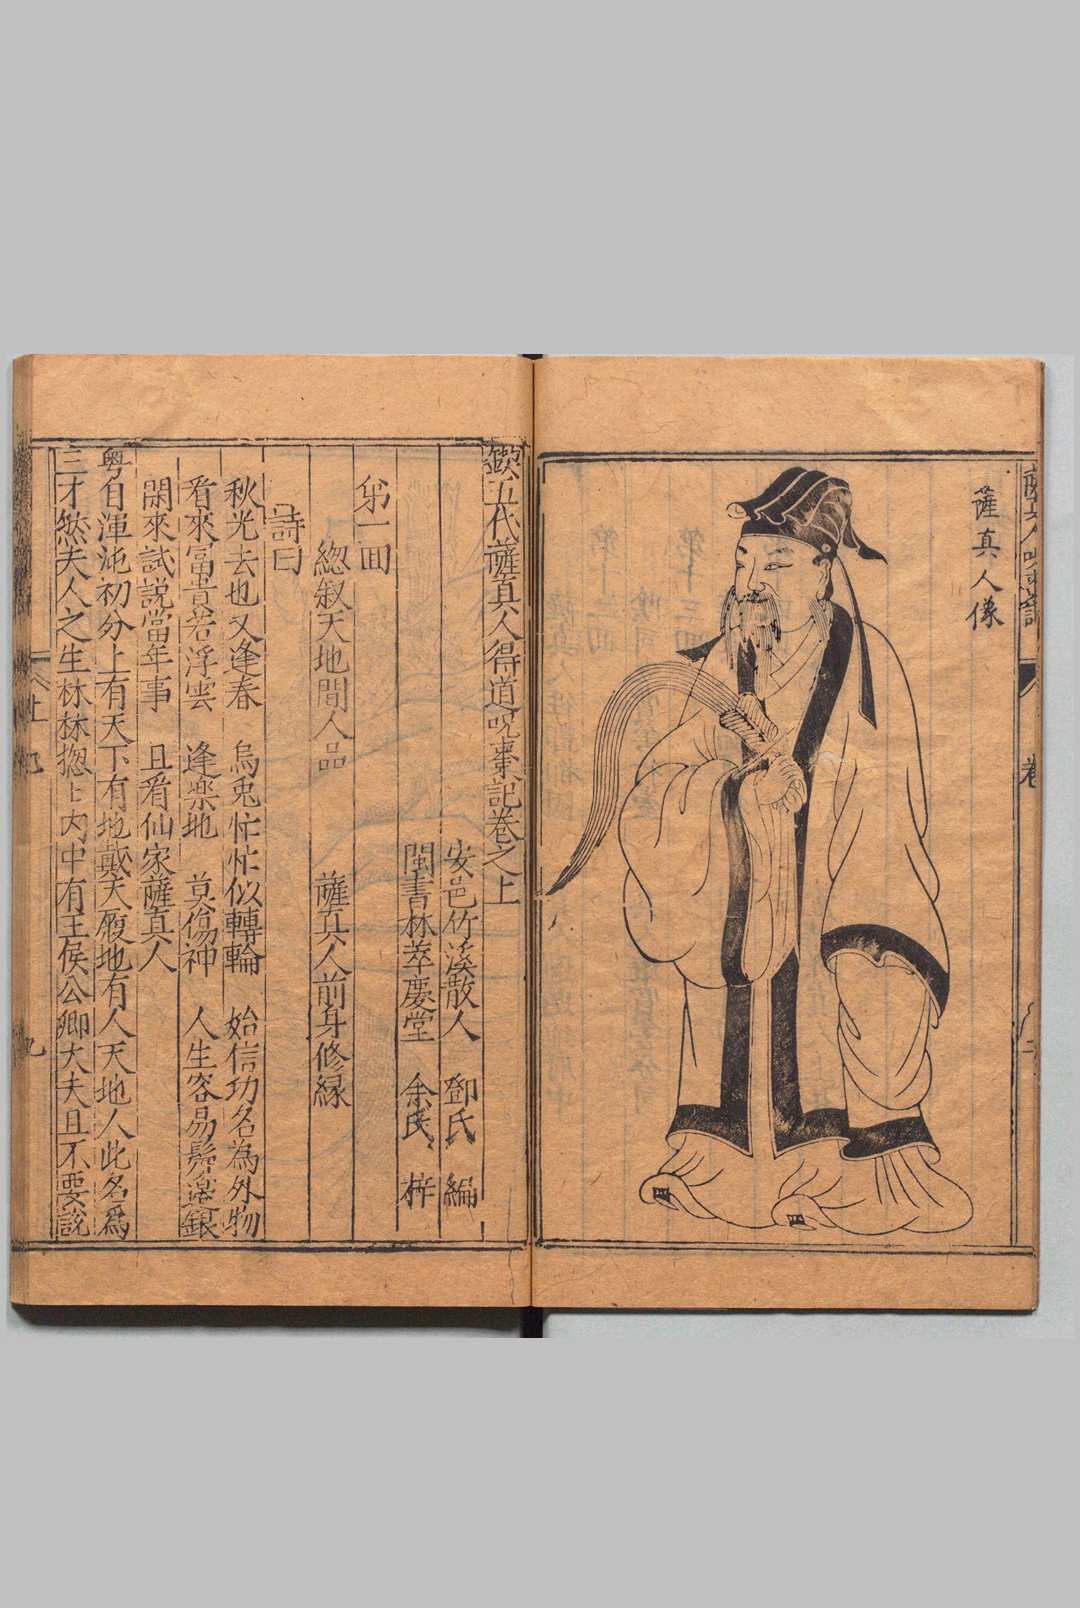 薩真人像
鍥五代薩真人得道呪棗記卷之上
安邑竹溪散人　鄧氏　編
閩書林萃慶堂　余氏　梓
第一回
總叙天地間人品　薩真人前身修緣
詩曰
秋光去也又逢春　烏兔忙忙似轉輪　始信功名為外物
看來冨貴若浮雲　逢樂地　莫傷神　人生容易鬂邉銀
閑來試説當年事　且看仙家薩真人
粵自渾沌初分上有天下有地戴天履地有人天地人此名爲
三才然夫人之生林林揔〻内中有王侯公卿大夫且不要説